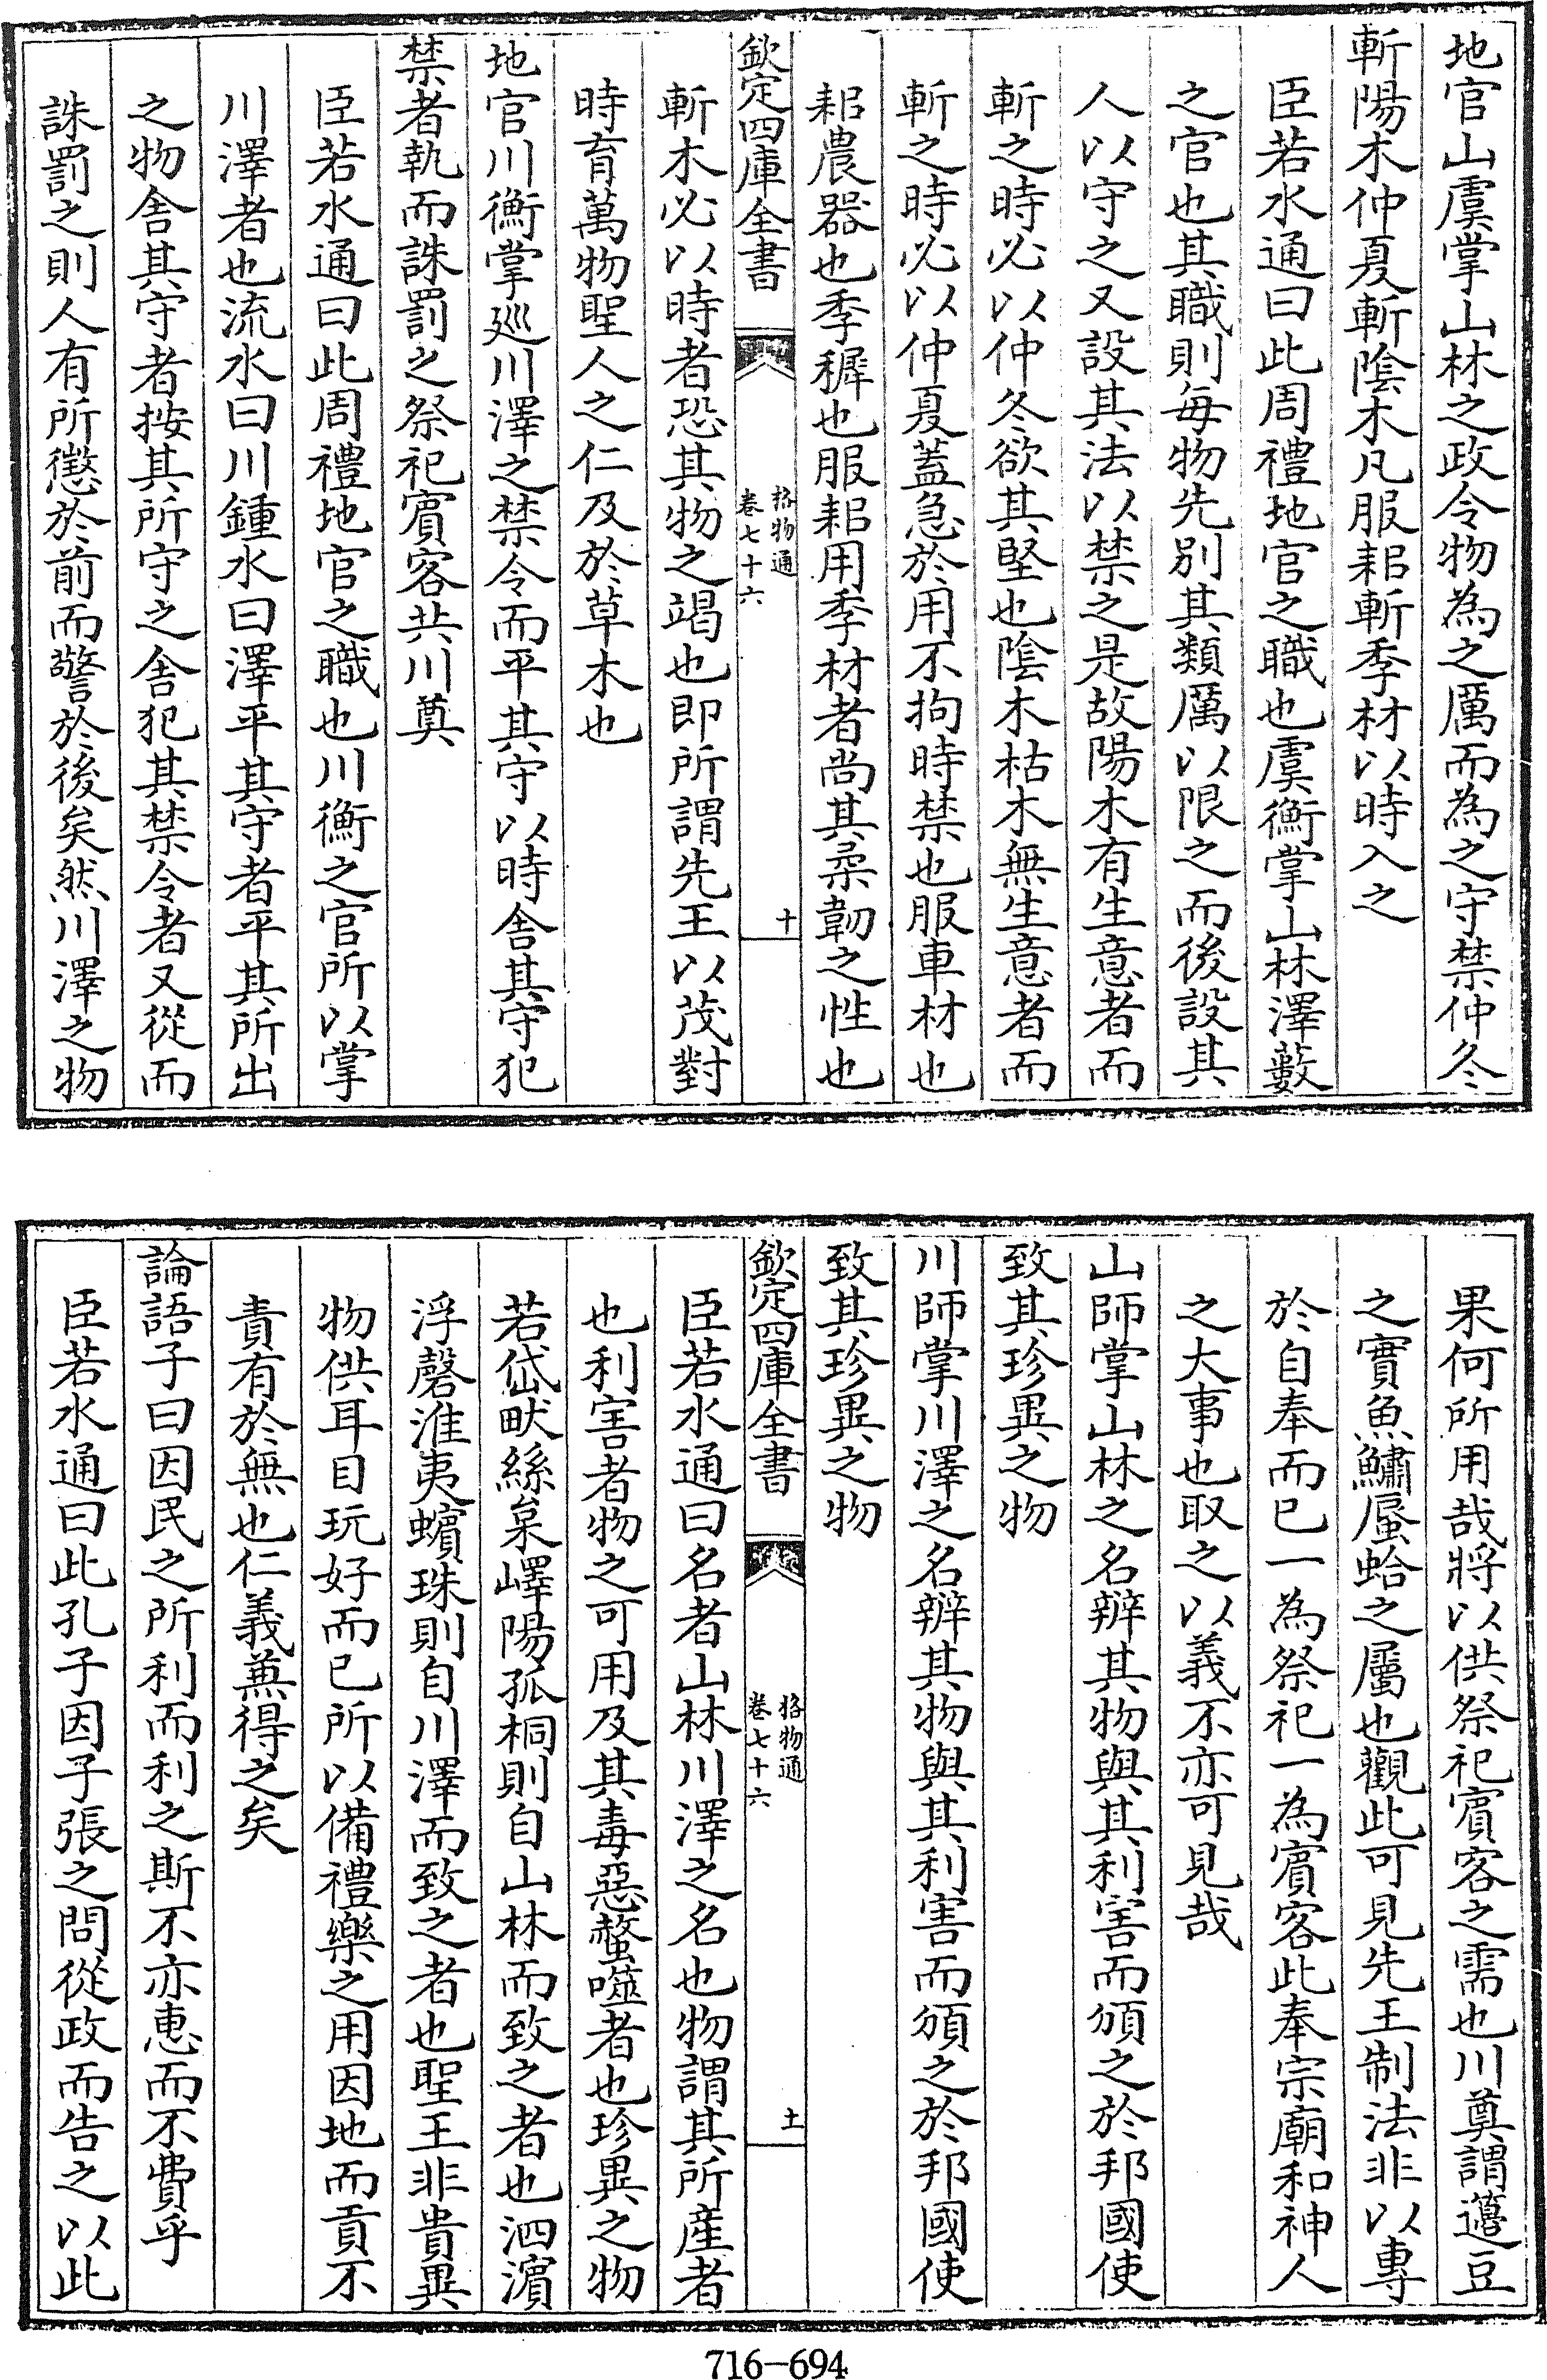 地官山虞掌山林之政令物為之厲而為之守禁仲冬
斬陽木仲夏斬陰木凡服耜斬季材以時入之
臣若水通曰此周禮地官之職也虞衡掌山林澤藪
之官也其職則每物先别其類厲以限之而後設其
人以守之又設其法以禁之是故陽木有生意者而
斬之時必以仲冬欲其堅也陰木枯木無生意者而
斬之時必以仲夏蓋急於用不拘時禁也服車材也
耜農器也季穉也服耜用季材者尚其柔韌之性也
欽定四庫全書
格物通
卷七十六
十
斬木必以時者恐其物之竭也即所謂先王以茂對
時育萬物聖人之仁及於草木也
地官川衡掌廵川澤之禁令而平其守以時舍其守犯
禁者執而誅罰之祭祀賓客共川奠
臣若水通曰此周禮地官之職也川衡之官所以掌
川澤者也流水曰川鍾水曰澤平其守者平其所出
之物舍其守者按其所守之舍犯其禁令者又從而
誅罰之則人有所懲於前而警於後矣然川澤之物
果何所用哉將以供祭祀賓客之需也川奠謂籩豆
之實魚鱐蜃蛤之屬也觀此可見先王制法非以專
於自奉而已一為祭祀一為賓客此奉宗廟和神人
之大事也取之以義不亦可見哉
山師掌山林之名辨其物與其利害而頒之於邦國使
致其珍異之物
川師掌川澤之名辨其物與其利害而頒之於邦國使
致其珍異之物
欽定四庫全書
格物通
卷七十六
十一
臣若水通曰名者山林川澤之名也物謂其所産者
也利害者物之可用及其毒惡螫噬者也珍異之物
若岱畎絲枲嶧陽孤桐則自山林而致之者也泗濱
浮磬淮夷蠙珠則自川澤而致之者也聖王非貴異
物供耳目玩好而已所以備禮樂之用因地而貢不
責有於無也仁義兼得之矣
論語子曰因民之所利而利之斯不亦惠而不費乎
臣若水通曰此孔子因子張之問從政而告之以此
716-694